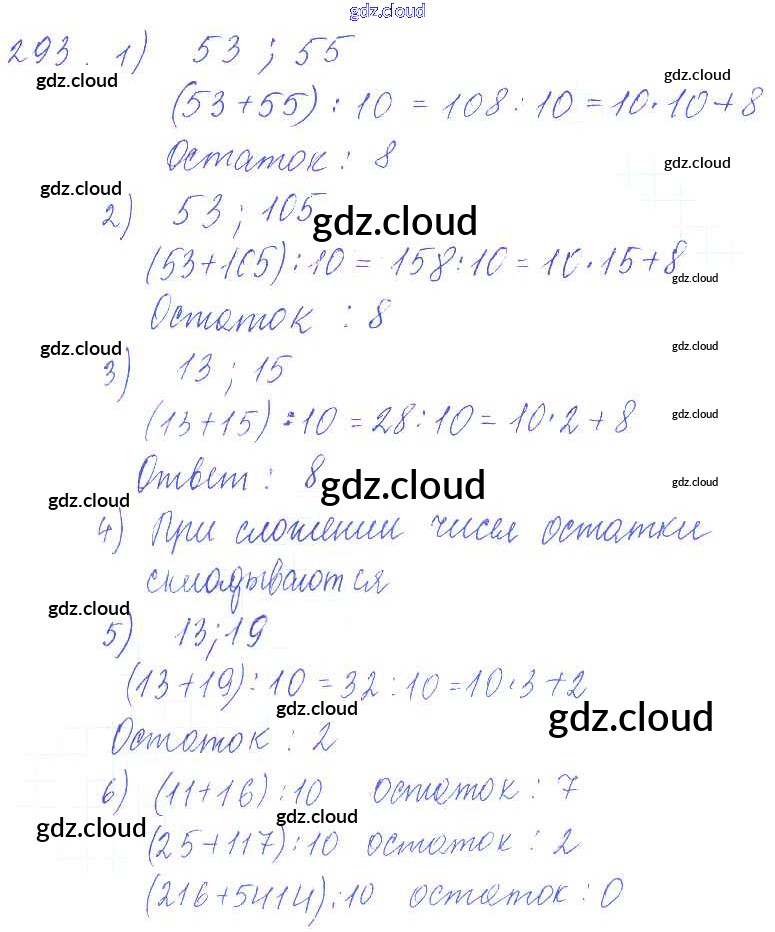 gdz.cloud
293. 1) 53 ; 55
gdz.cloud gdz.cloud
(53+55) : 10 = 108 : 10 = 10·10+8
Остаток : 8 gdz.cloud
gdz.cloud
2) 53 ; 105
gdz.cloud
(53+105) : 10 = 158 : 10 = 10·15+8
gdz.cloud
Остаток : 8
gdz.cloud gdz.cloud
3) 13 ; 15
(13+15) : 10 = 28 : 10 = 10·2+8
gdz.cloud
Ответ : 8
gdz.cloud gdz.cloud
gdz.cloud
4) При сложении чисел остатки
складываются
gdz.cloud
5) 13 ; 19
(13+19) : 10 = 32 : 10 = 10·3+2
gdz.cloud gdz.cloud
Остаток : 2
6) (11+16) : 10 остаток : 7
gdz.cloud gdz.cloud
(25+117) : 10 остаток : 2
(216+5414) : 10 остаток : 0